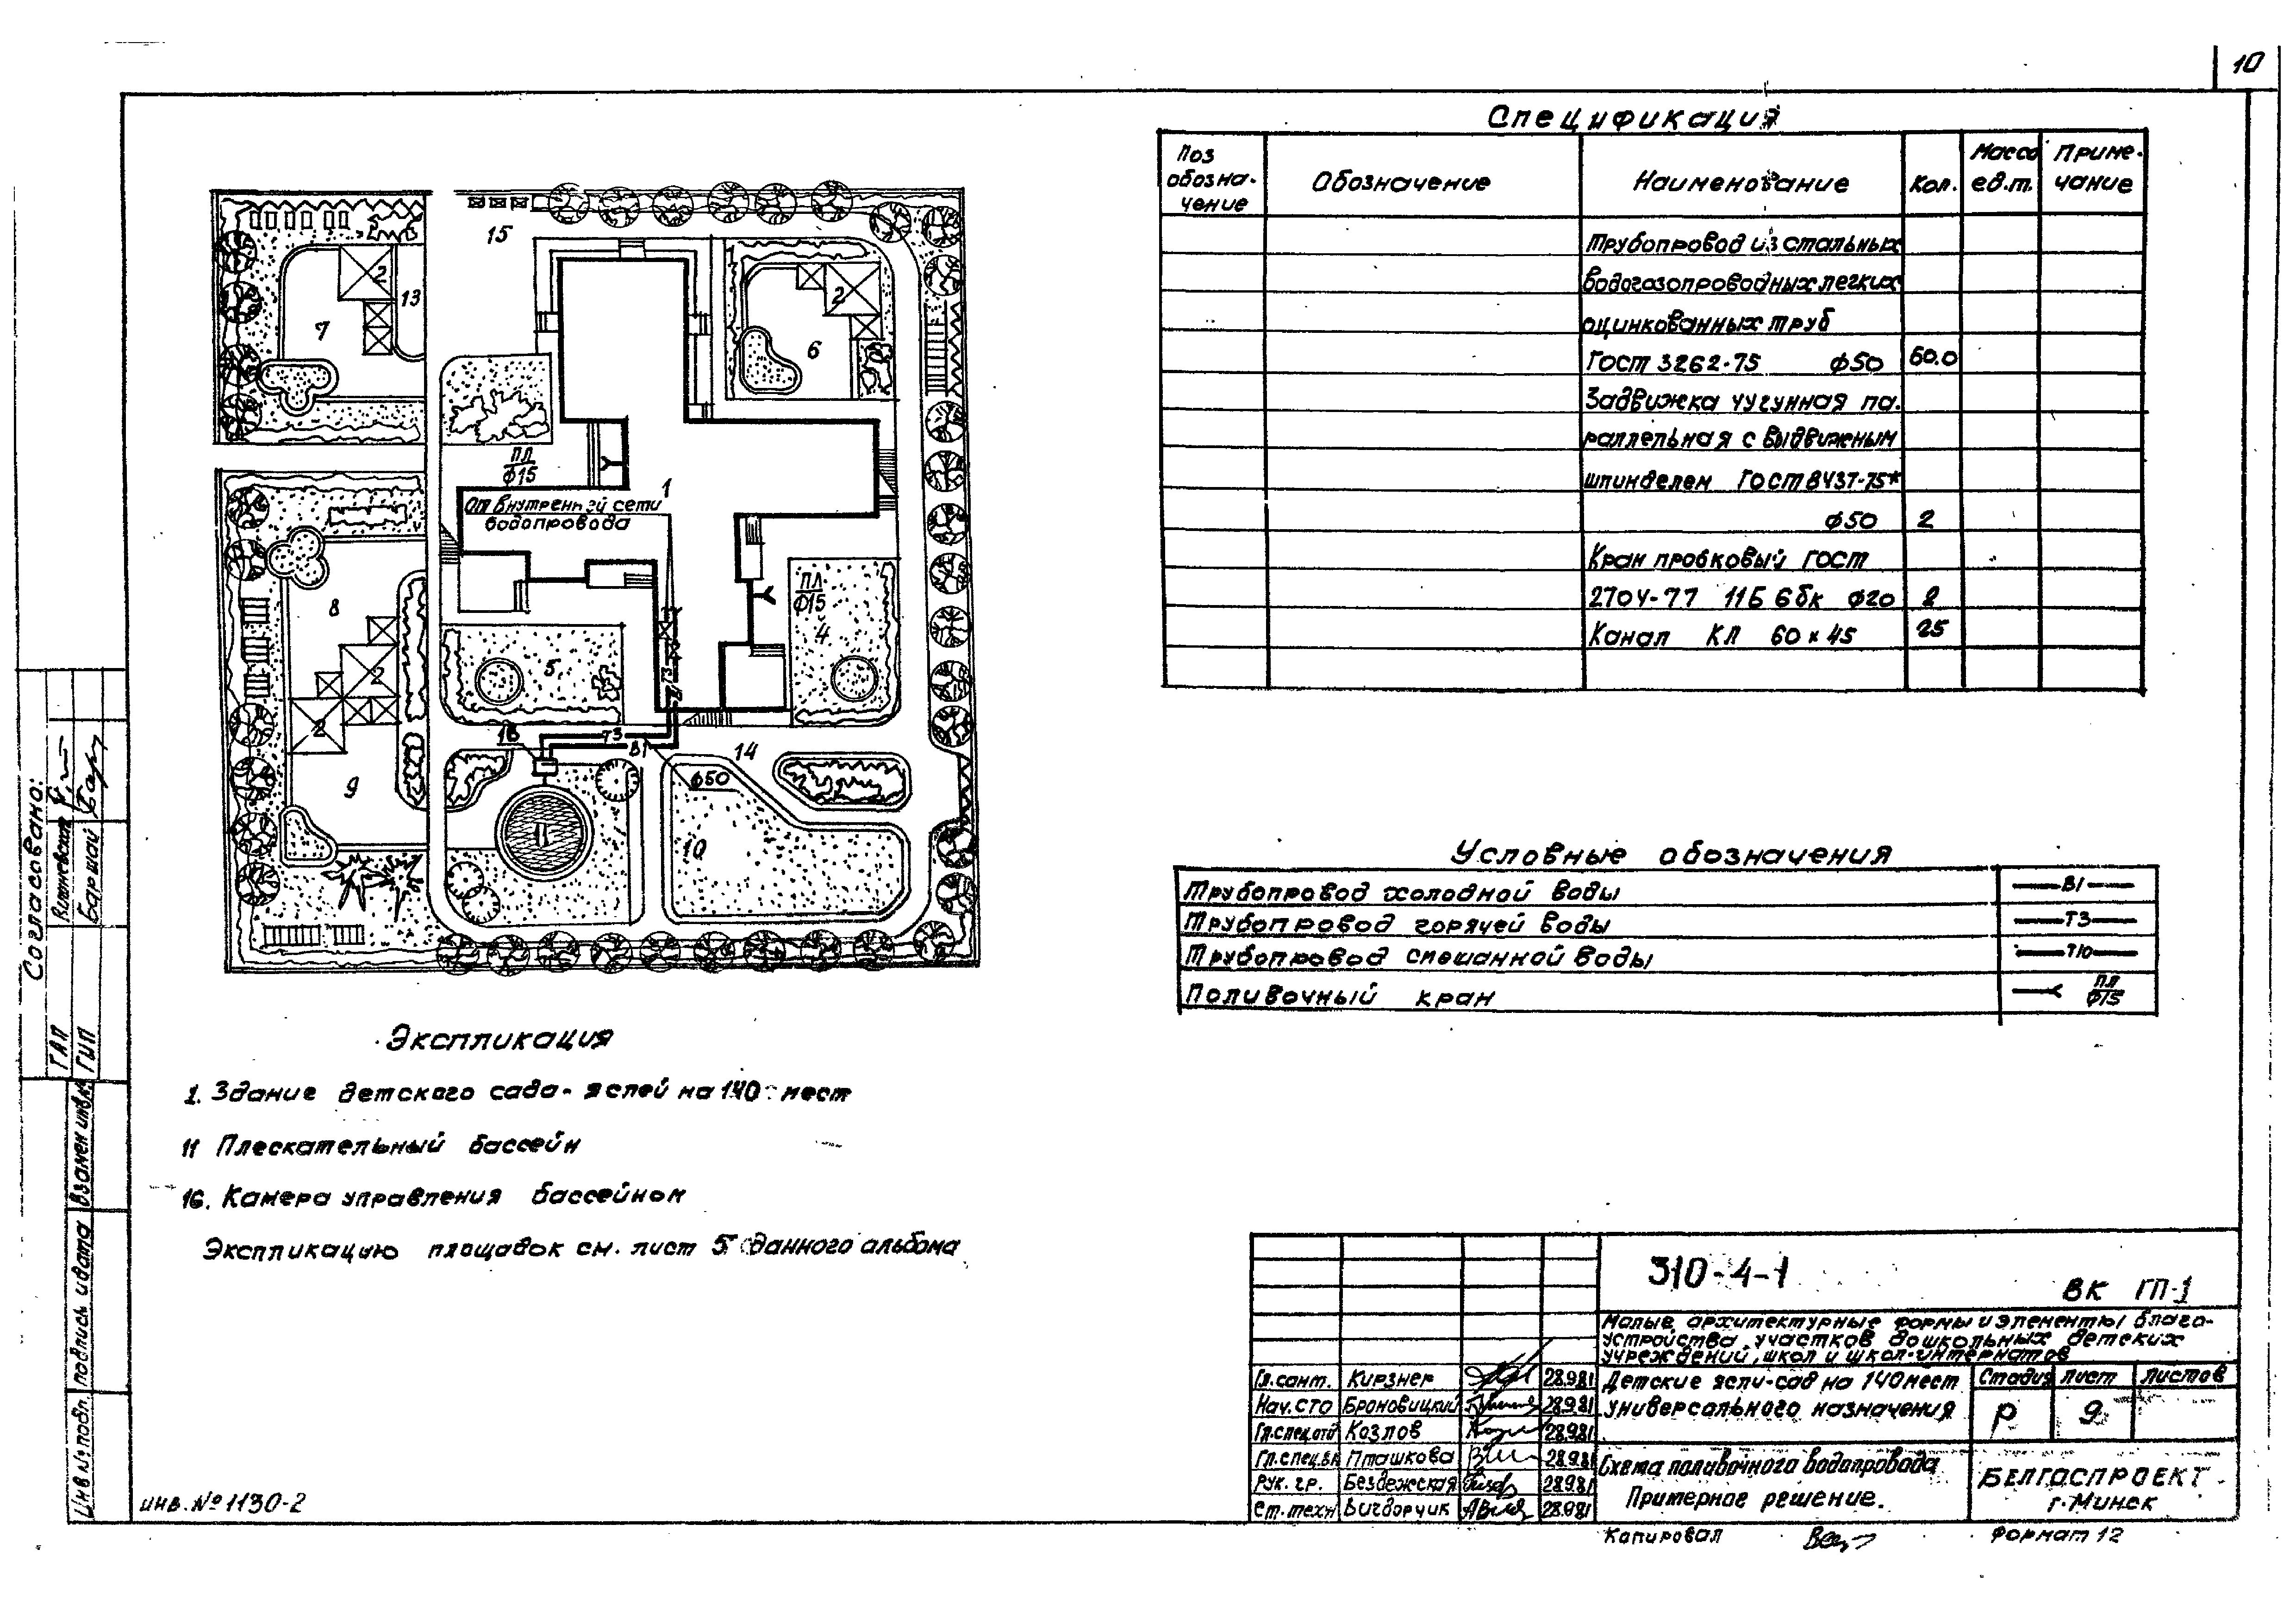 10
Спецификация
Поз обозна-чение
Обозначение
Наименование
Кол.
Масса ед.т.
Приме-чание
Трубопровод из стальных
водогазопроводных легких
оцинкованных труб
ГОСТ 3262-75 ф50 60.0
Задвижка чугунная па-
раллельная с выдвижным
шпинделем ГОСТ 8437-75*
ф50 2
Кран пробковый ГОСТ
2704-77 11Б 6бк ф20 2
Канал КЛ 60×45 25
Условные обозначения
Трубопровод холодной воды В1
Трубопровод горячей воды Т3
Трубопровод смешанной воды Т10
Поливочный кран ПЛ ф15
15
2
13
7
2
6
ПЛ
ф15
1
От внутренней сети
водопровода
ПЛ
ф15
8
4
5
2
Т3
2
16
Т3
В1
14
9
ф50
11
10
Экспликация
1. Здание детского сада-яслей на 140 мест
11 Плескательный бассейн
16. Камера управления бассейном
Экспликацию площадок см. лист 5 данного альбома
Согласовано:
ГАП
ГИП Баршай
Взамен инв.№
Подпись и дата
Инв № подл.
инв. № 1130-2
310-4-1
ВК ГП-1
Малые архитектурные формы и элементы благо-
устройства участков дошкольных детских
учреждений, школ и школ-интернатов
Гл.сант. Кирзнер 28.9.81
Нач. СТО Броновицкий 28.9.81
Гл.спец.отд Козлов 28.9.81
Гл.спец.вк Пташкова 28.9.81
Рук. гр. Бездежская 28.9.81
Ст.техн Вигдорчик 28.9.81
Детские ясли-сад на 140 мест
универсального назначения
Стадия Лист Листов
Р 9
Схема поливочного водопровода
Примерное решение.
БЕЛГОСПРОЕКТ
г. Минск
Копировал
Формат 12